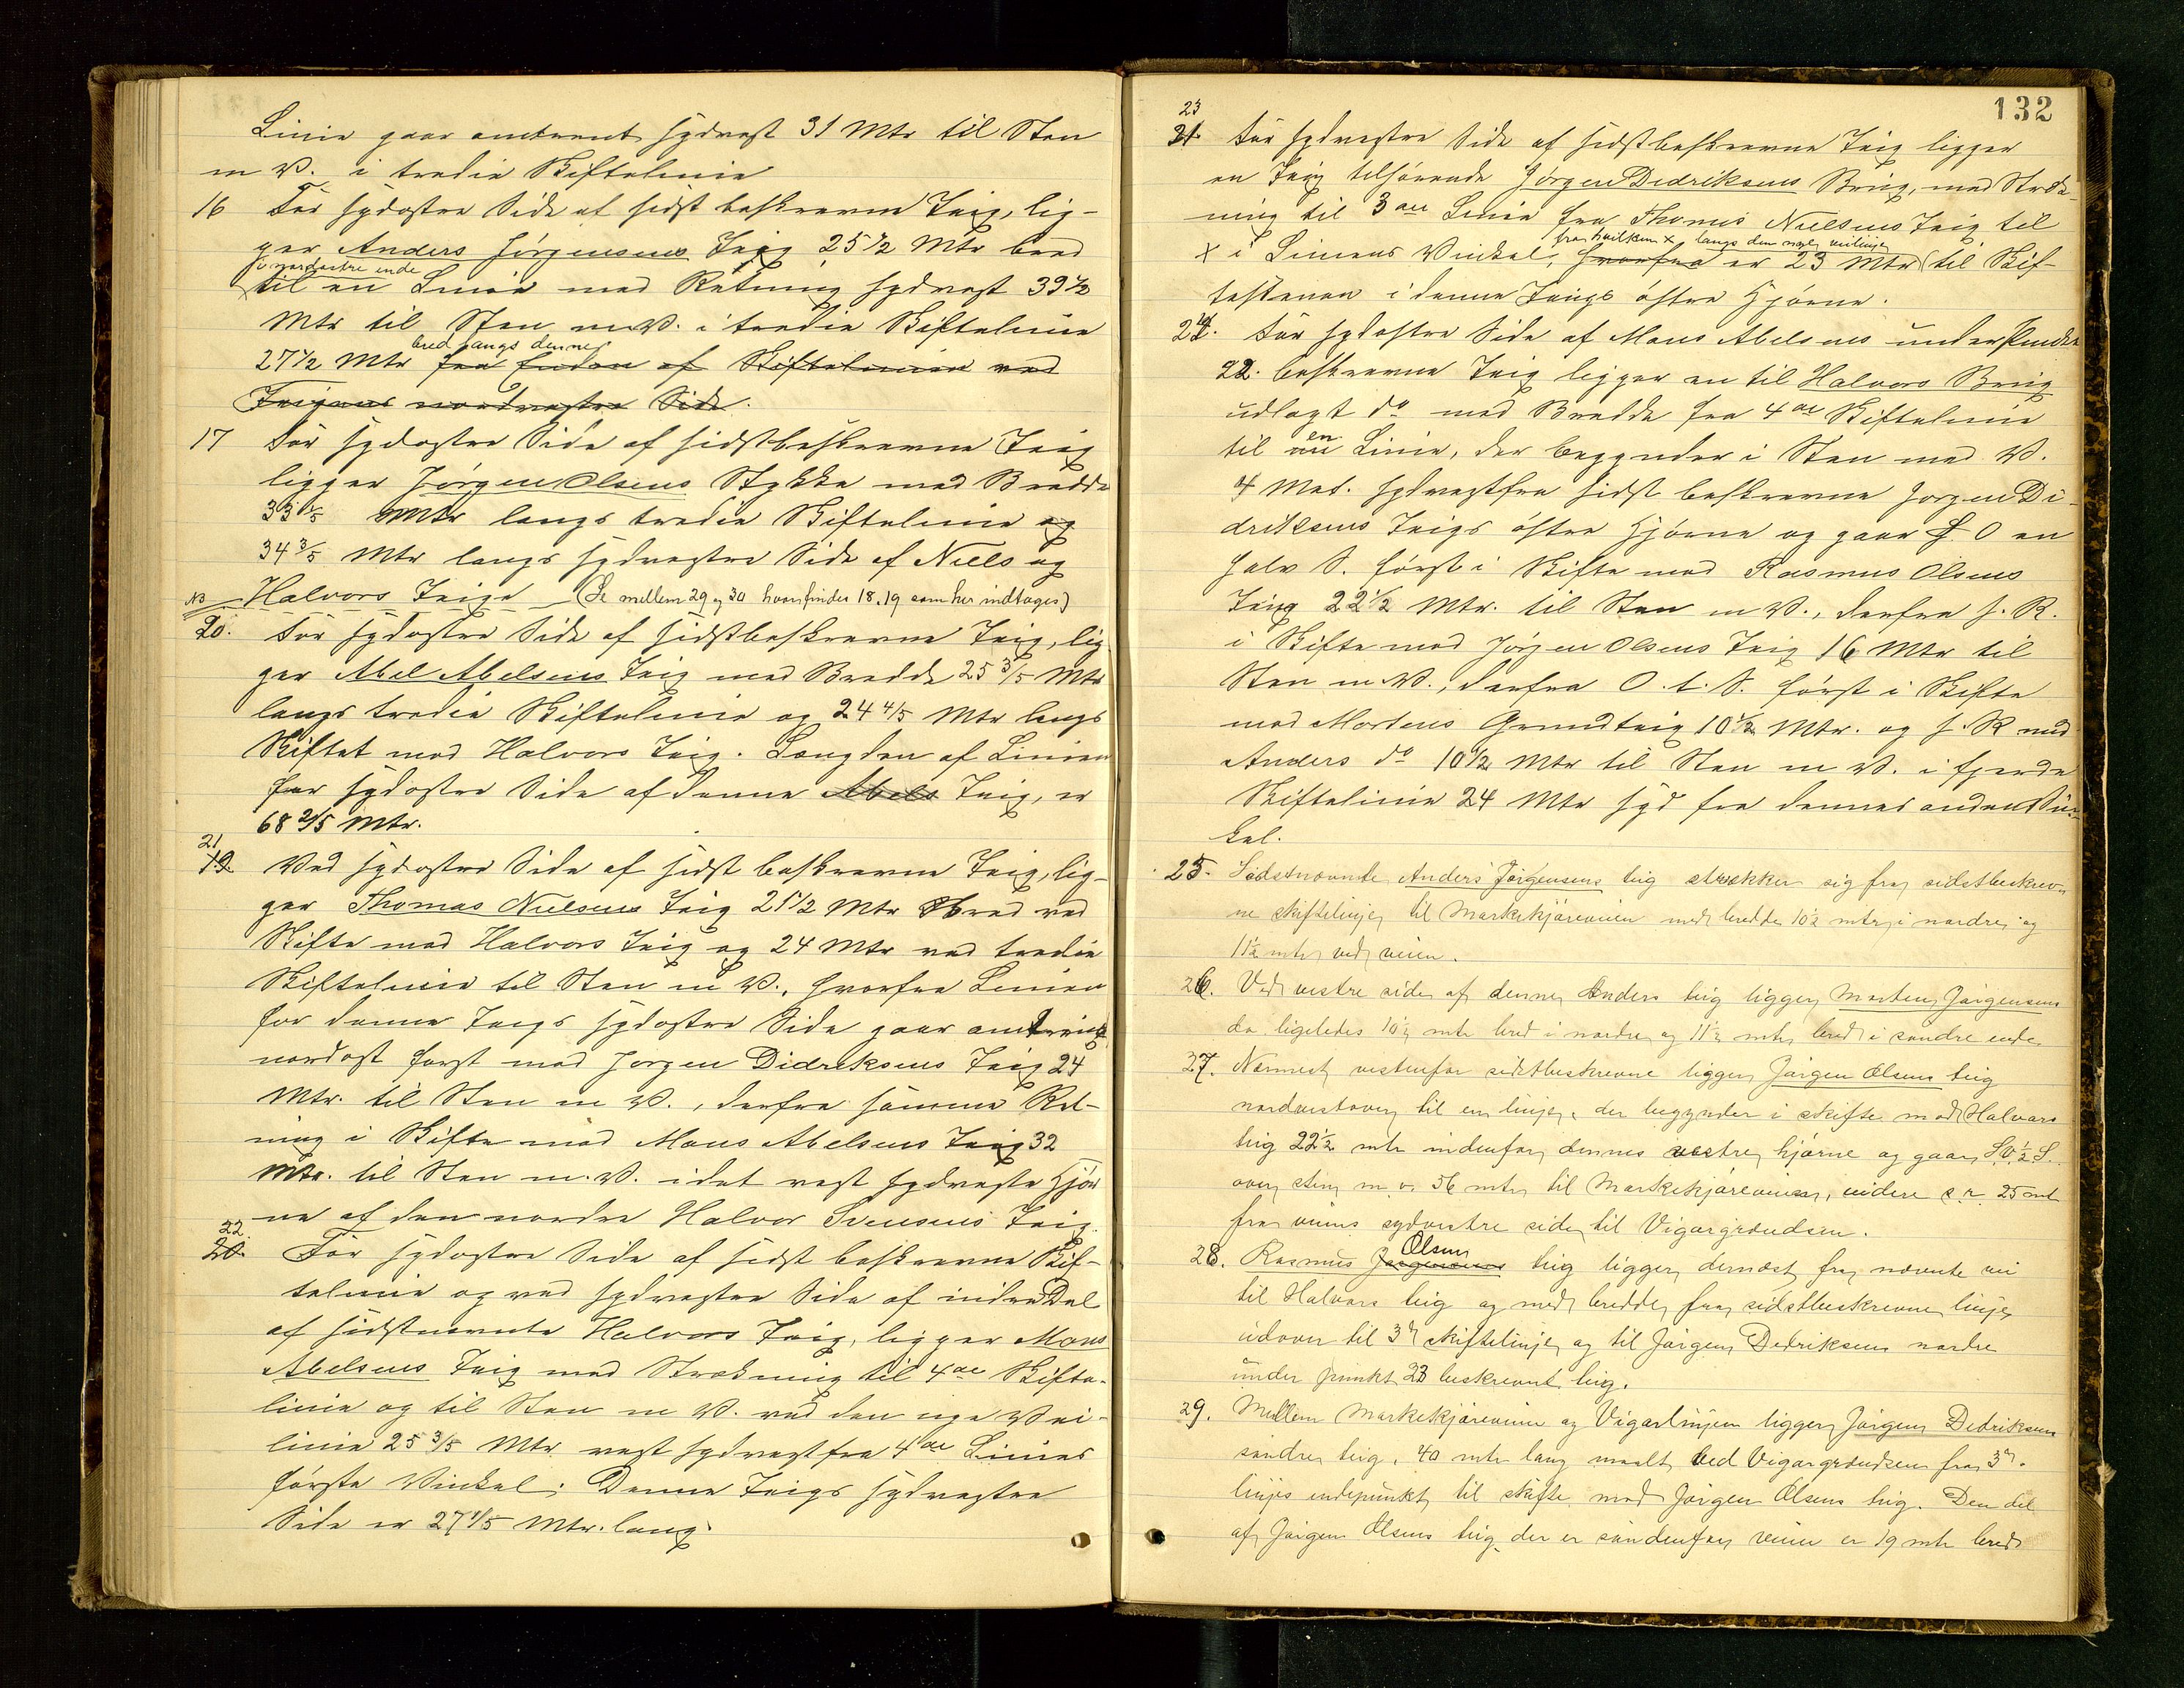 Linie gaar omtrent sydvest 31 Mtr til Sten
m V. i tredie Skiftelinie
16 For sydostre Side af sidst beskrevne Teig, lig-
ger Anders Jörgensens Teig 25 1/2 Mtr bred
i nordostre ende
til en Linie med Retning sydvest 39 1/2
Mtr til Sten m. V. i tredie Skiftelinie
bred langs denne
27 1/2 Mtr fra Enden af Skiftelinien ved
Teigens nordvestre Side.
17 For sydostre Side af sidstbeskrevne Teig
ligger Jörgen Olsens Stykke med Bredde
33 1/5 Mtr langs tredie Skiftelinie og
34 3/5 Mtr langs sydvestre Side af Niels og
NB Halvors Teige (Se mellem 29 og 30 hvor findes 18. 19 som her indtages)
20. For sydostre Side af sidstbeskrevne Teig, lig
ger Abel Abelsens Teig med Bredde 25 3/5 Mtr
langs tredie Skiftelinie og 24 4/5 Mtr langs
Skiftet mod Halvors Teig. Længden af Linien
for sydostre Side af denne Abels Teig, er
68 2/5 Mtr.
21
19 Ved sydostre Side af sidst beskrevne Teig, lig-
ger Thomas Nielsens Teig 21 1/2 Mtr bred ved
Skifte mod Halvors Teig og 24 Mtr ved tredie
Skiftelinie til Sten m V., hvorfra Linien
for denne Teigs sydostre Side gaar omtrent
nordost först mod Jorgen Didreksens Teig 24
Mtr. til Sten m V., derfra samme Ret-
ning i Skifte mod Mons Abelsens Teig 32
Mtr. til Sten m. V. i det vest sydvestre Hjör
ne af den nordre Halvor Svensens Teig.
22.
20. For sydostre Side af sidst beskrevne Skif-
telinie og ved sydvestre Side af indre Del
af sidstnævnte Halvors Teig, ligger Mons
Abelsens Teig med Strækning til 4de Skifte-
linie og til Sten m V. ved den nye Vei-
linie 25 3/5 Mtr vest sydvest fra 4de Linies
förste Vinkel; Denne Teigs sydvestre
Side er 27 1/5 Mtr. lang.
132
23
21. For sydvestre Side af sidstbeskrevne Teig ligger
en Teig tilhörende Jörgen Didriksens Brug, med Stræk-
ning til 3die Linie fra Thomas Nielsens Teig til
fra hvilken x langs den nye veilinje
x i Liniens Vinkel, hvorfra er 23 Mtr til Skif-
testenen i denne Teigs östre Hjörne.
24. For sydostre Side af Mons Abelsens under Punkt
22. beskrevne Teig ligger en til Halvors Brug
udlagt do med Bredde fra 4de Skiftelinie
en
til en Linie, der begynder i Sten med V.
4 Met. sydvest fra sidst beskrevne Jorgen Di-
driksens Teigs östre Hjörne og gaar S. O en
halv S. först i Skifte mod Rasmus Olsens
Teig 22 1/2 Mtr. til Sten m V., derfra s. R.
i Skifte mod Jörgen Olsens Teig 16 Mtr til
Sten m. V., derfra O. t. S. först i Skifte
mod Mortens Grundteig 10 1/2 Mtr. og s. R mod
Anders do 10 1/2 Mtr til Sten m V. i fjerde
Skiftelinie 24 Mtr syd fra dennes anden Vin-
kel.
25. Sidstnævnte Anders Jörgensens teig strækker sig fra sidstbeskrev-
ne skiftelinje til Markekjøreveien med bredde 10 1/2 mtr i nordre og
11 1/2 mtr ved veien.
26. Ved vestre side af denne Anders teig ligger Morten Jørgensens
do ligeledes 10 1/2 mtr bred i nordre og 11 1/2 mtr bred i søndre ende.
27. Nærmest vestenfor sidstbeskrevne ligger Jørgen Olsens teig
nordvestover til en linje, der begynder i skifte mod Halvors
teig 22 1/2 mtr indenfor dennes vestre hjørne og gaar S.V. 1/2 S.
over sten m. v. 56 mtr til Markekjøreveien, videre s. r. 25 mtr
fra veiens sydvestre side til Vigargrændsen.
Olsens
28. Rasmus Jørgensens teig ligger dernæst fra nævnte vei
til Halvors teig og med bredde fra sidstbeskrevne linje
udover til 3die skiftelinje og til Jørgen Dedriksens nordre
under punkt 23 beskrevne teig.
29. Mellem Markekjøreveien og Vigarlinjen ligger Jørgen Dedriksens
søndre teig, 40 mtr lang maalt ved Vigargrændsen fra 3die
linjes endepunkt til skifte mod Jørgen Olsens teig. Den del
af Jørgen Olsens teig, der er søndenfor veien er 19 mtr bred